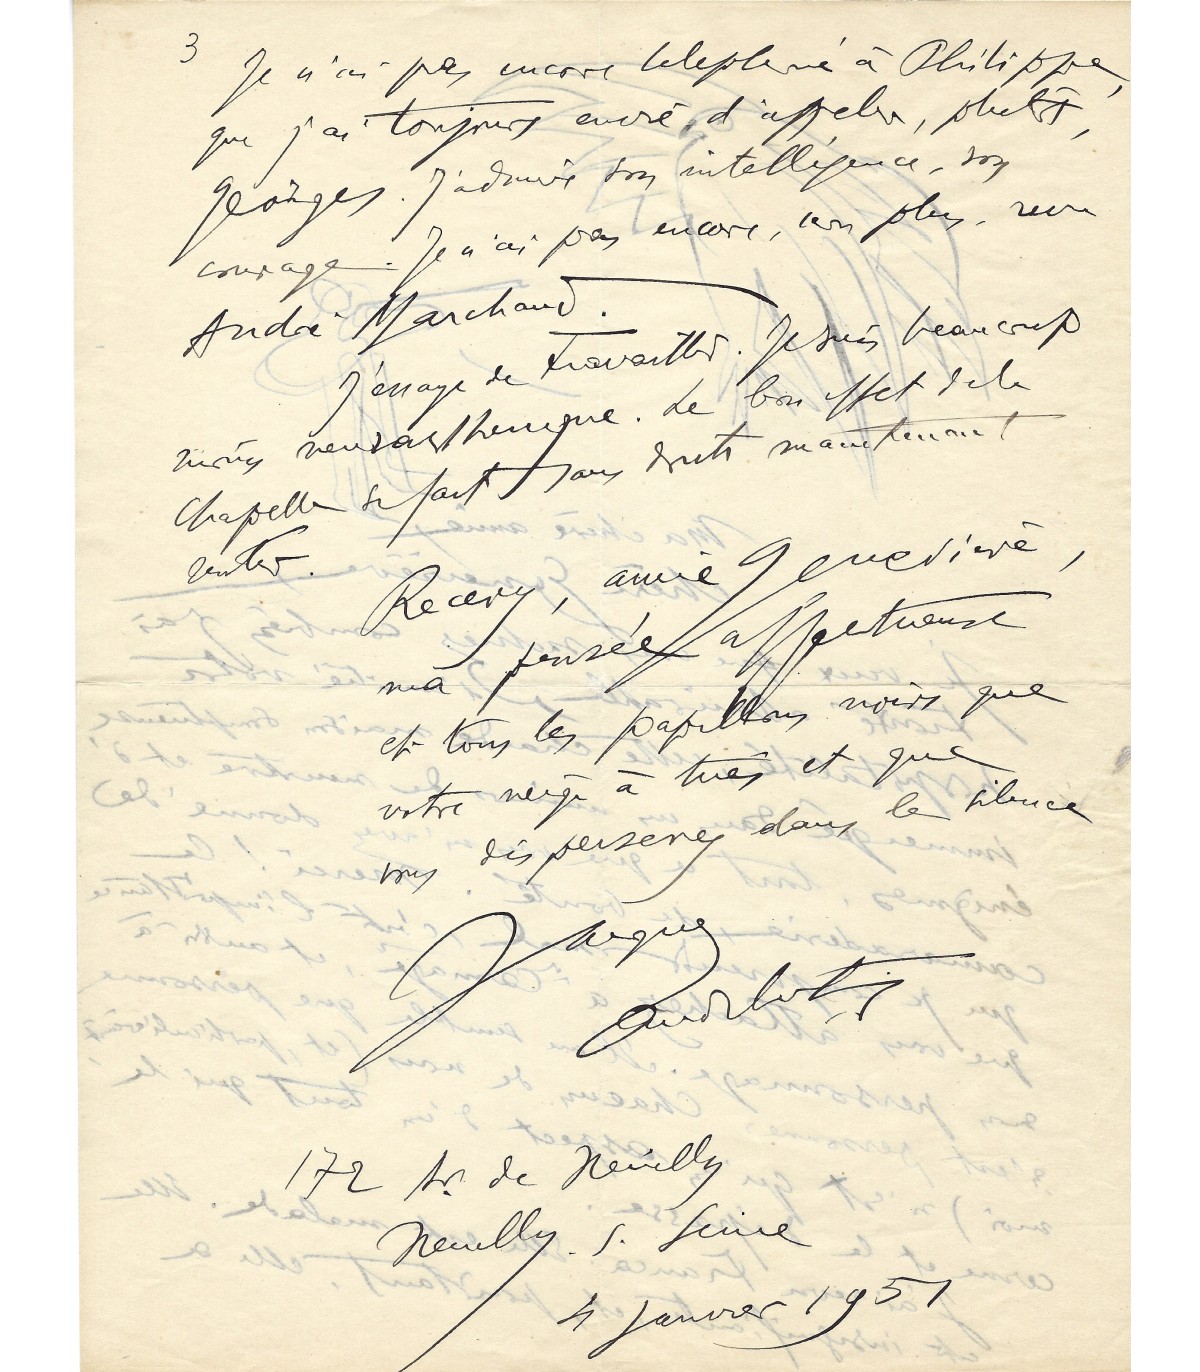 3
Je n'ai pas encore téléphoné à Philippe,
que j'ai toujours envie d'appeler, plutôt,
Georges. J'admire son intelligence, son
courage. Je n'ai pas encore, non plus, revu
André Marchand.
J'essaye de travailler. Je suis beaucoup
moins neurasthénique. Le bon effet de la
chapelle se fait sans doute maintenant
sentir.
Recevez, amie Geneviève,
ma pensée affectueuse
et tous les papillons noirs que
votre neige a tués et que
vous disperserez dans le silence
Jacques
Audiberti
172 Av. de Neuilly
Neuilly. s. Seine
4 janvier 1951